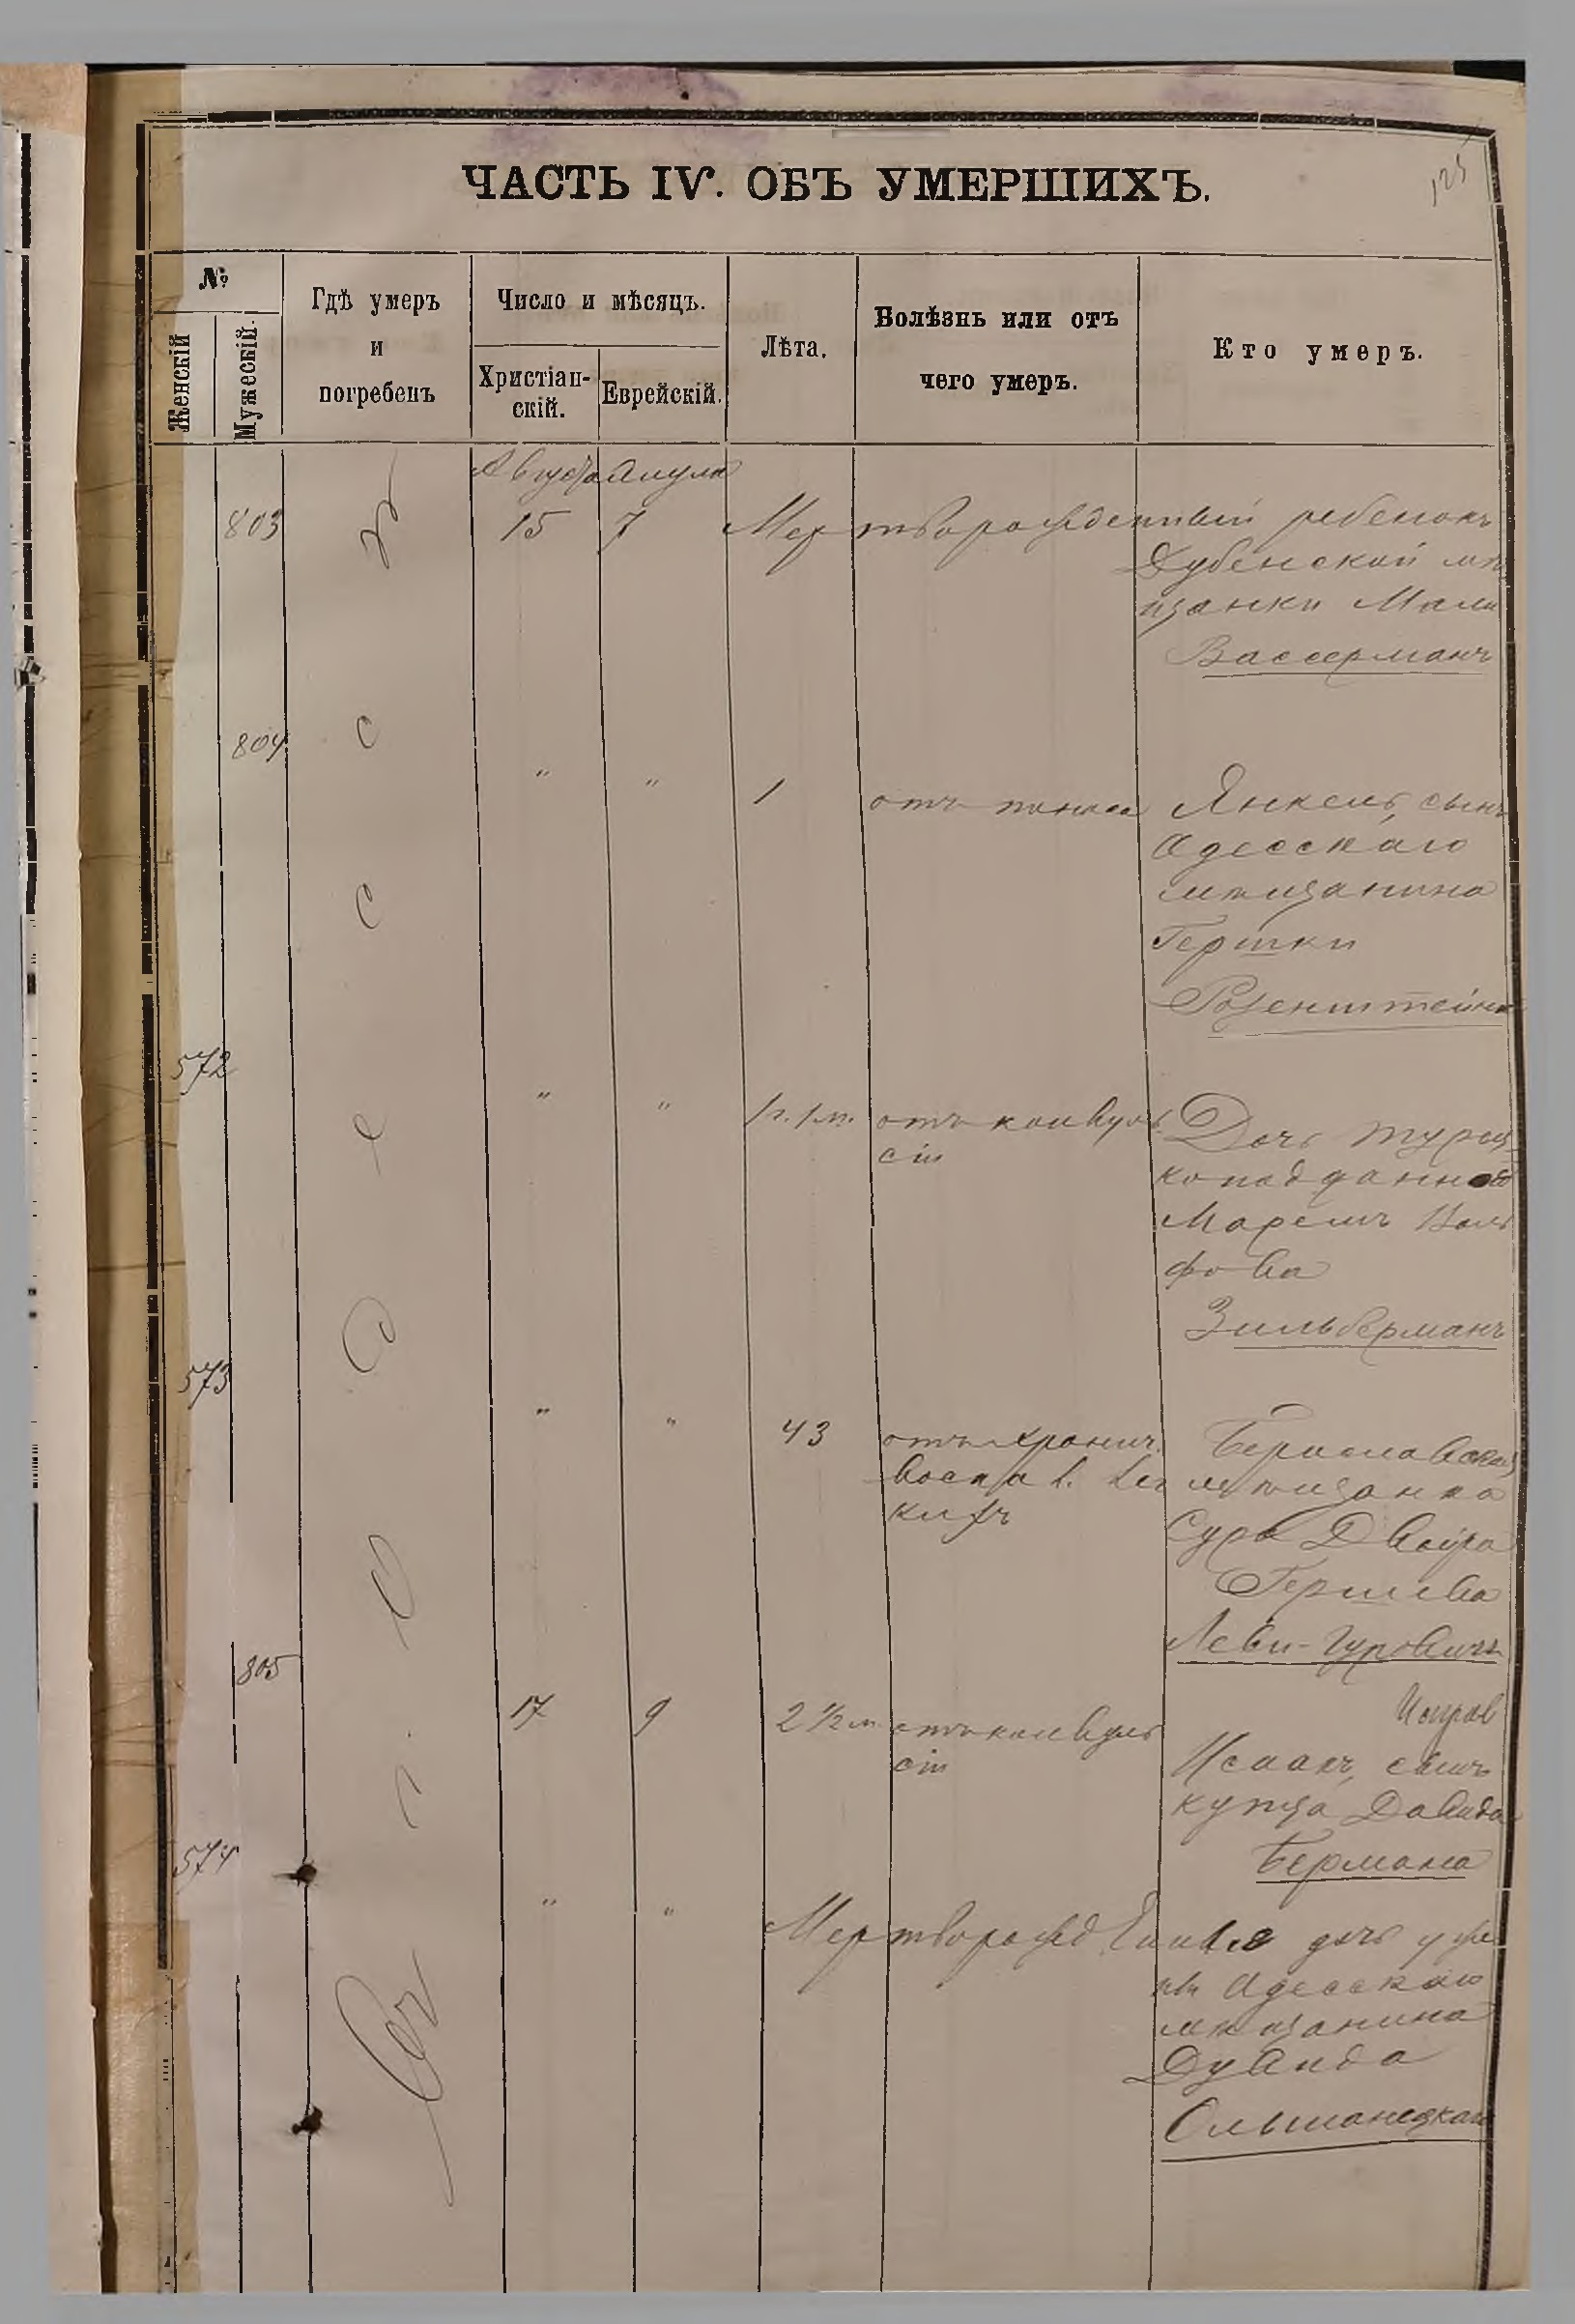 125
ЧАСТЬ IV. ОБЪ УМЕРШИХЪ.
№
Женскій
Мужескій.
Гдѣ умеръ
и
погребенъ
Число и мѣсяцъ.
Христіан-
скій.
Еврейскій.
Лѣта.
Болѣзнь или отъ
чего умеръ.
Кто умеръ.
Августа
803 15 7 Мертворожденный ребенокъ
Дубенской мѣ
щанки Мали
Вассерманъ
804 " " 1 отъ поноса Янкель, сынъ
Одесскаго
мѣщанина
Гершки
Розенштейна
572 " " 1 г. 1 м. отъ конвуль
сій
Дочь турец
коподданного
Маремъ Воль
фова
Зильберманъ
573 " " 43 отъ хронич.
воспал. лег
кихъ
Бериславская
мѣщанка
Сура Двойра
Гершева
Леви-Гуровичъ
805 17 9 2 ½ м. отъ конвуль
сій
Исаакъ, сынъ
купца Давида
Бермана
574 " " Мертворожденная дочь у же
ны Одесского
мѣщанина
Дувида
Ольшанецкаго